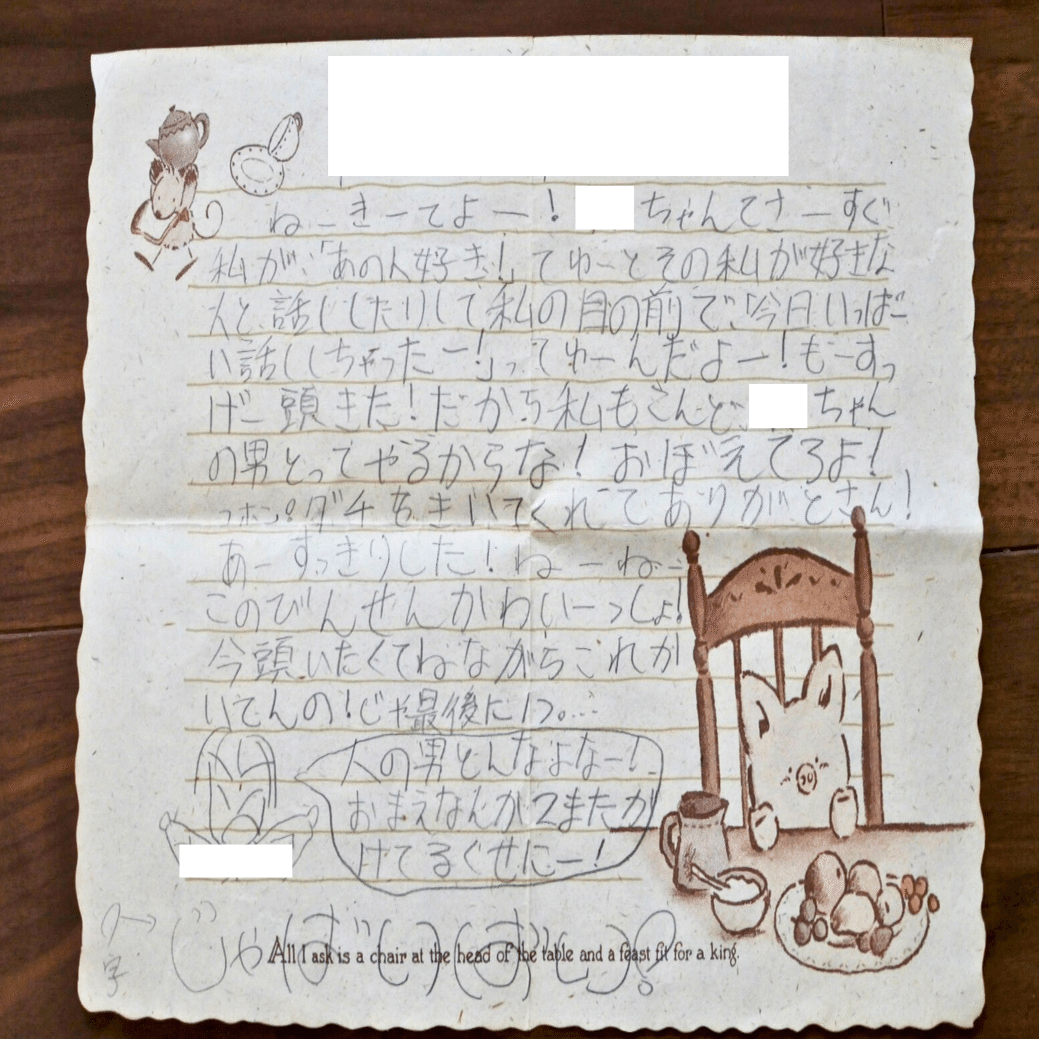 ねーきーてよー! ちゃんてさーすぐ
私が「あの人好き!」てゆーとその私が好きな
人と話ししたりして私の目の前で「今日いっぱー
い話ししちゃったー!」ってゆーんだよー!もーすっ
げー頭きた!だから私もこんど ちゃん
の男とってやるからな!おぼえてろよ!
ダチをきいてくれてありがとさん!
あーすっきりした!ねーねー
このびんせんかわいーっしょ!
今頭いたくてねながらこれか
いてんの!じゃ最後に1つ。…
人の男とんなよなー!
おまえなんか2またが
けてるくせにー!
字
All I ask is a chair at the head of the table and a feast fit for a king.